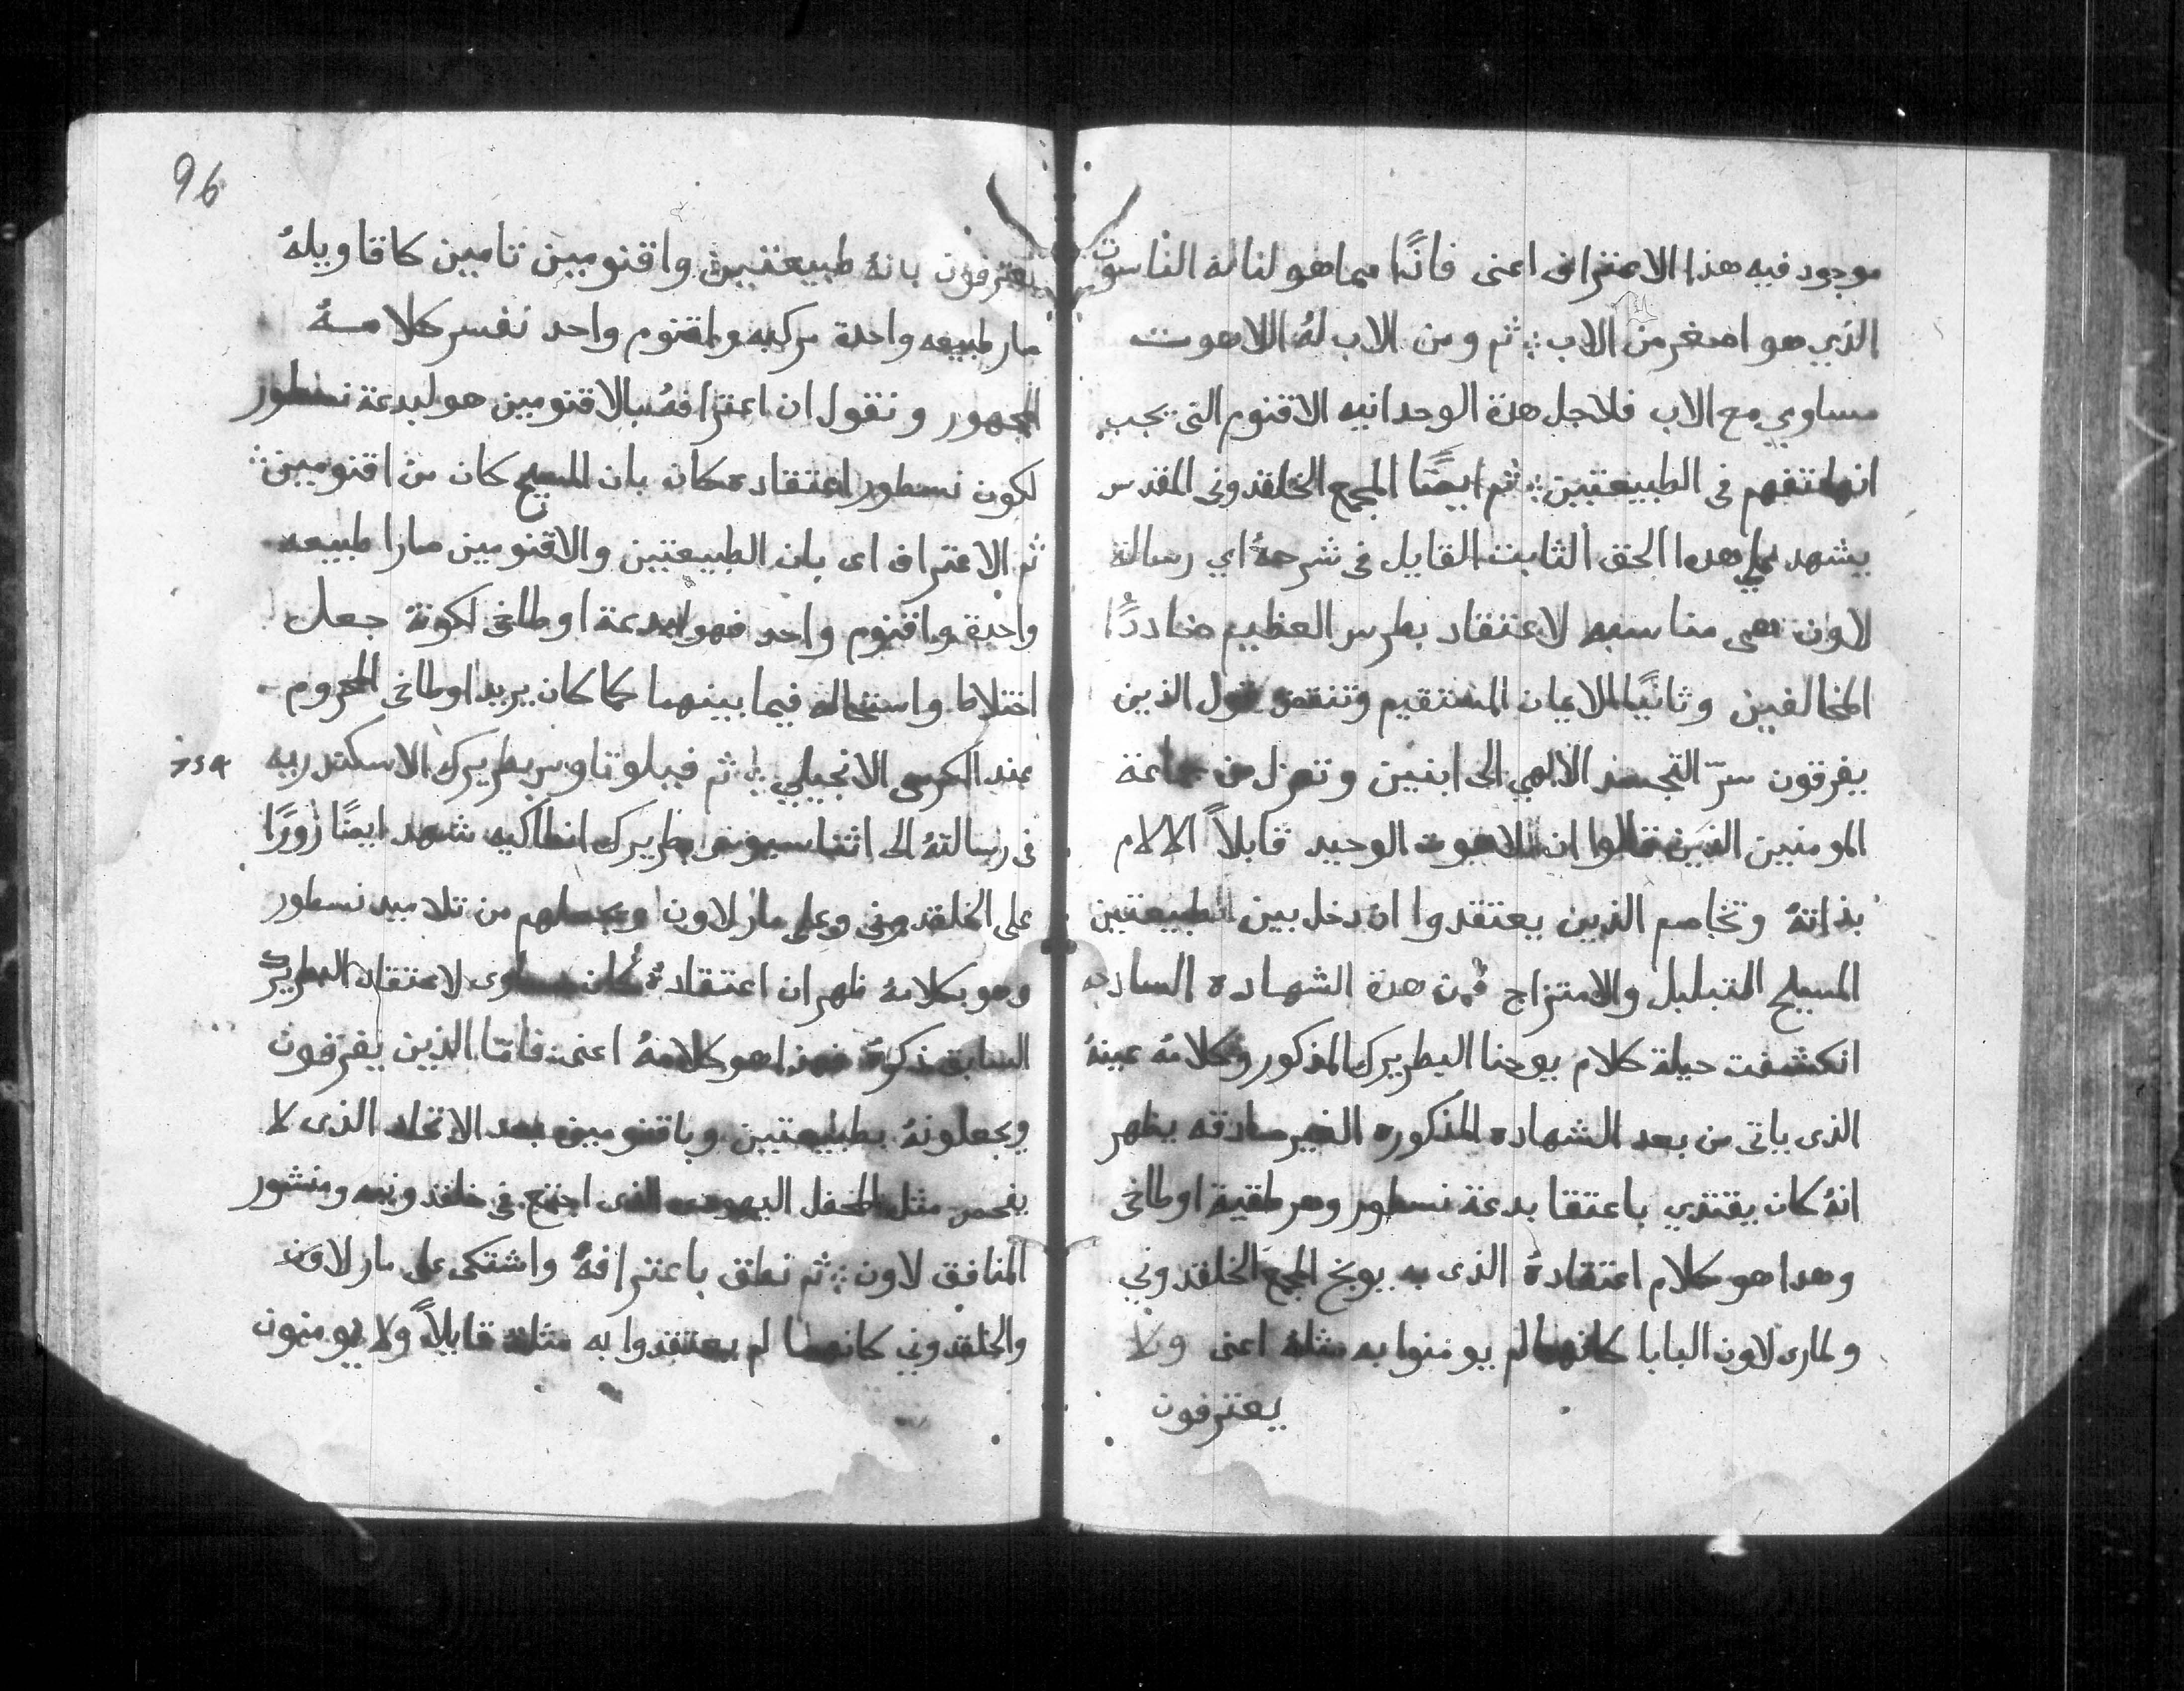 موجود فيه هذا الاعتراف اعنى فانًا مما هو لنا له الناسوت
الذي هو اصغر من الاب ؞ ثم ومن الاب لهُ اللاهوت
مساوي مع الاب فلاجل هذة الوحدانيه الاقنوم التى يجب
انها تفهم فى الطبيعتين ؞ ثم ايضًا المجمع الخلقدونى المقدس
يشهد على هدا الحق الثابت القايل فى شرحهُ اي رسالة
لاون هى مناسبه لاعتقاد بطرس العظيم ضاددًا
المخالفين وثانيًا الايمان المستقيم وتنقض قول الذين
يفرقون سرّ التجسد الالهي الى ابنين وتعزل من جماعة
المومنين الذين قالوا ان اللاهوت الوحيد قابلاً الالام
بذاتهُ وتخاصم الذين يعتقدوا ان دخل بين الطبيعتين
المسيح التبلبل والامتزاج فمن هدة الشهاده الصادقه
انكشفت حيلة كلام يوحنا البطريرك المذكور وكلامه عينهُ
الذى ياتى من بعد الشهاده المذكوره الغير صادقه يظهر
انهُ كان يقتدي باعتقا بدعة نسطور وهرطقية اوطاخى
وهدا هو كلام اعتقادهُ الذى به يوبخ المجمع الخلقدوني
ولمارى لاون البابا كانهما لم يومنوا به مثلهُ اعنى ولا
يعترفون
96
يعترفون بانهُ طبيعتين واقنومين تامين كاقاويلهُ
صار طبيعه واحدة مركبه واقنوم واحد نفسر كلامـهُ
المجهور ونقول ان اعترافهُ بالاقنومين هو لبدعة نسطور
لكون نسطور اعتقاده كان بان المسيح كان من اقنومين ؞
ثم الاعتراف اى بان الطبيعتين والاقنومين صارا طبيعه
واحدة واقنوم واحد فهو لبدعة اوطاخى لكونهُ جعل
اختلاط واستحاله فيما بينهما كما كان يريد اوطاخى المحروم
عند الكرسى الانجيلي ؞ ثم فيلوتاوس بطريرك الاسكندريه
فى رسالتهُ الى اثناسيوس بطريرك انطاكيه شهد ايضًا زورًا
على الخلقدونى وعلى مار لاون ويجعلهم من تلاميد نسطور
وهو بكلامهُ ظهر ان اعتقادهُ كان مساوى لاعتقاد البطريرك
السابق ذكرهُ فهذا هو كلامهُ اعنى فامّا الذين يفرقون
ويجعلونهُ بطبيعتين وباقنومين بعد الاتحاد الذى لا
يفحص مثل المحفل اليهودى الذى اجتمع فى خلقدونيه ومنشور
المنافق لاون ؞ ثم نطق باعترافهُ واشتكى على مار لاون
والخلقدوني كانهما لم يعتقدوا به مثلهُ قايلاً ولا يومنون